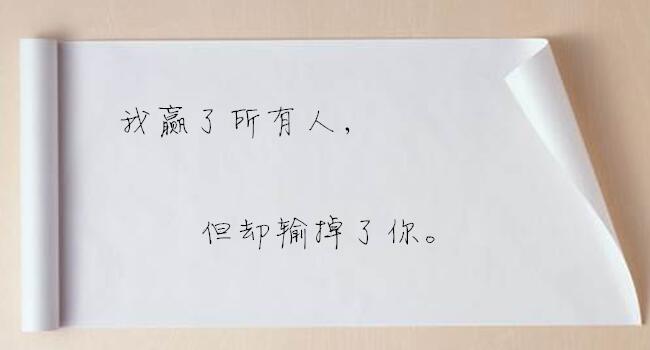 我赢了所有人，
但却输掉了你。